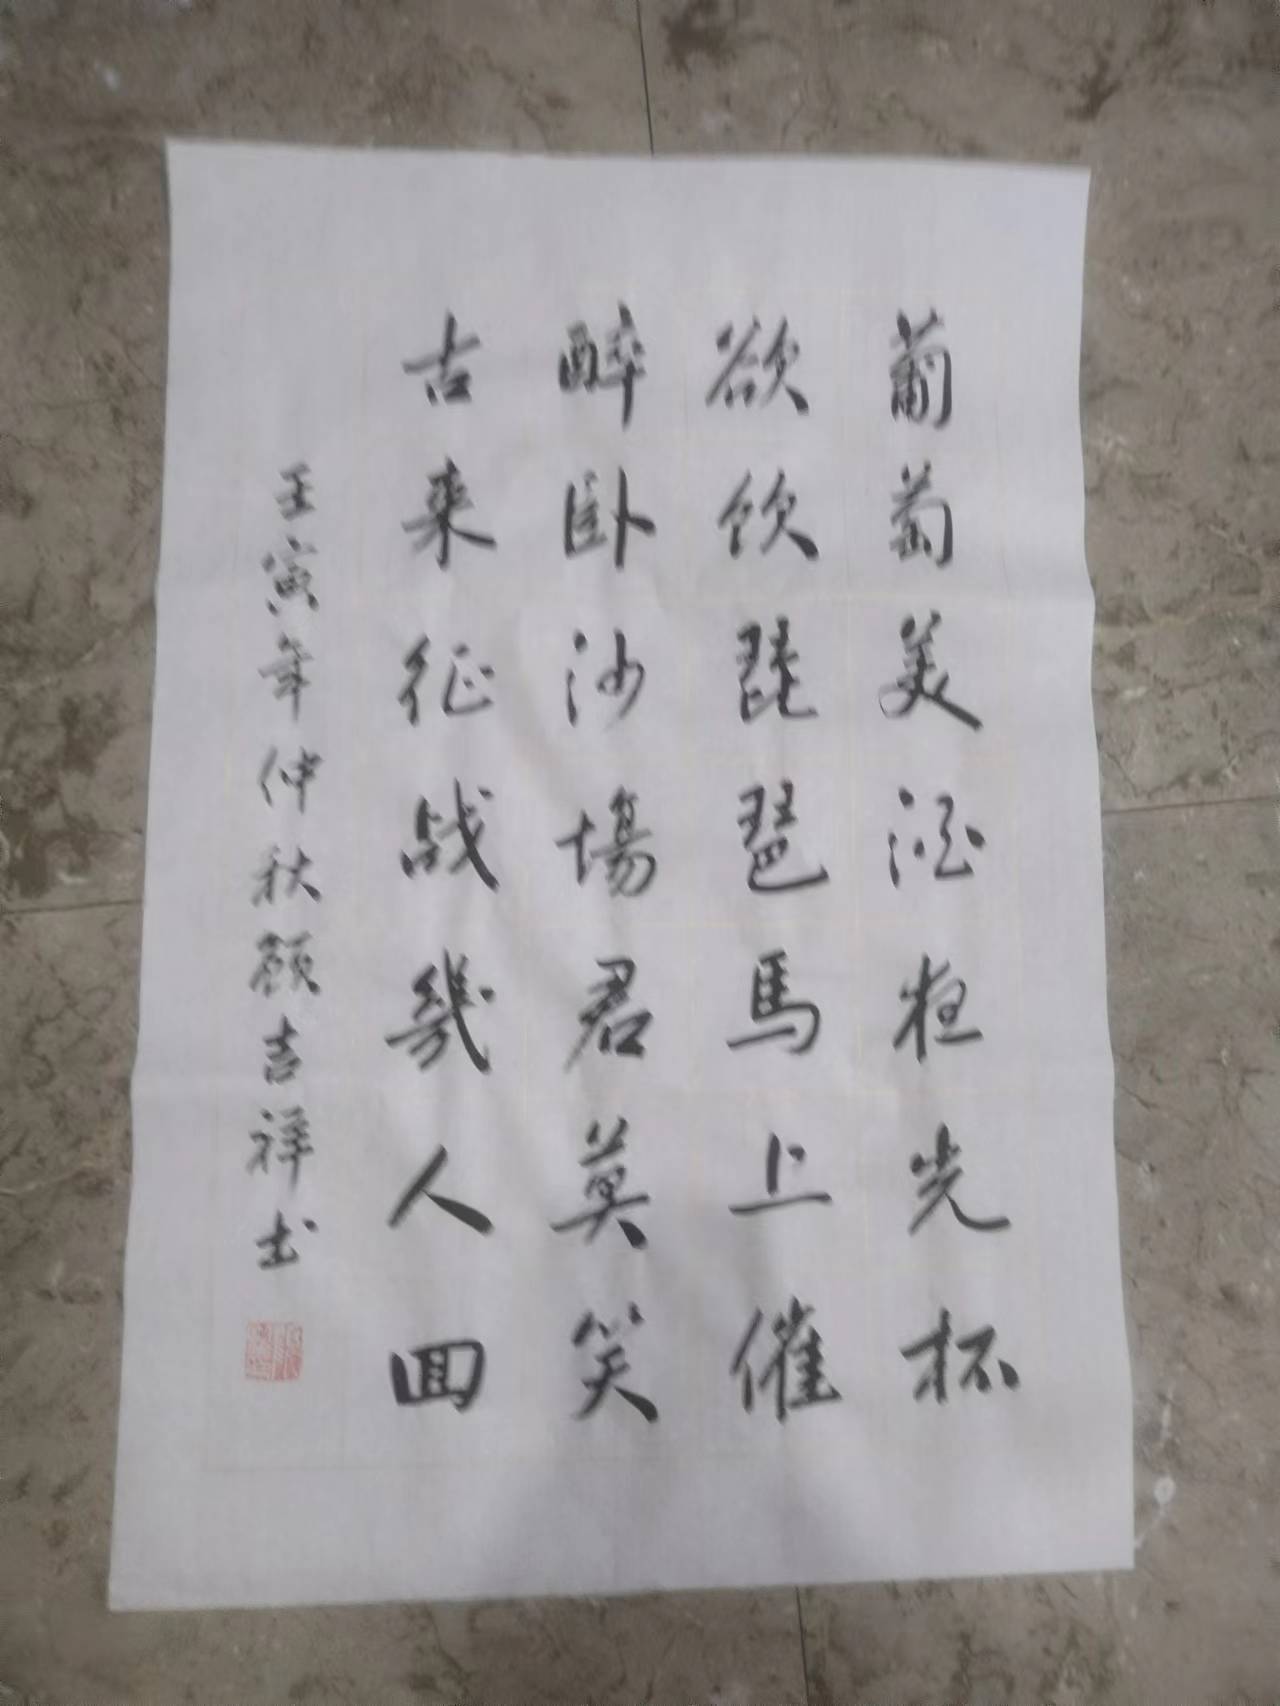 葡萄美酒夜光杯
欲飲琵琶馬上催
醉卧沙場君莫笑
古来征战幾人回
壬寅年仲秋顏吉祥书